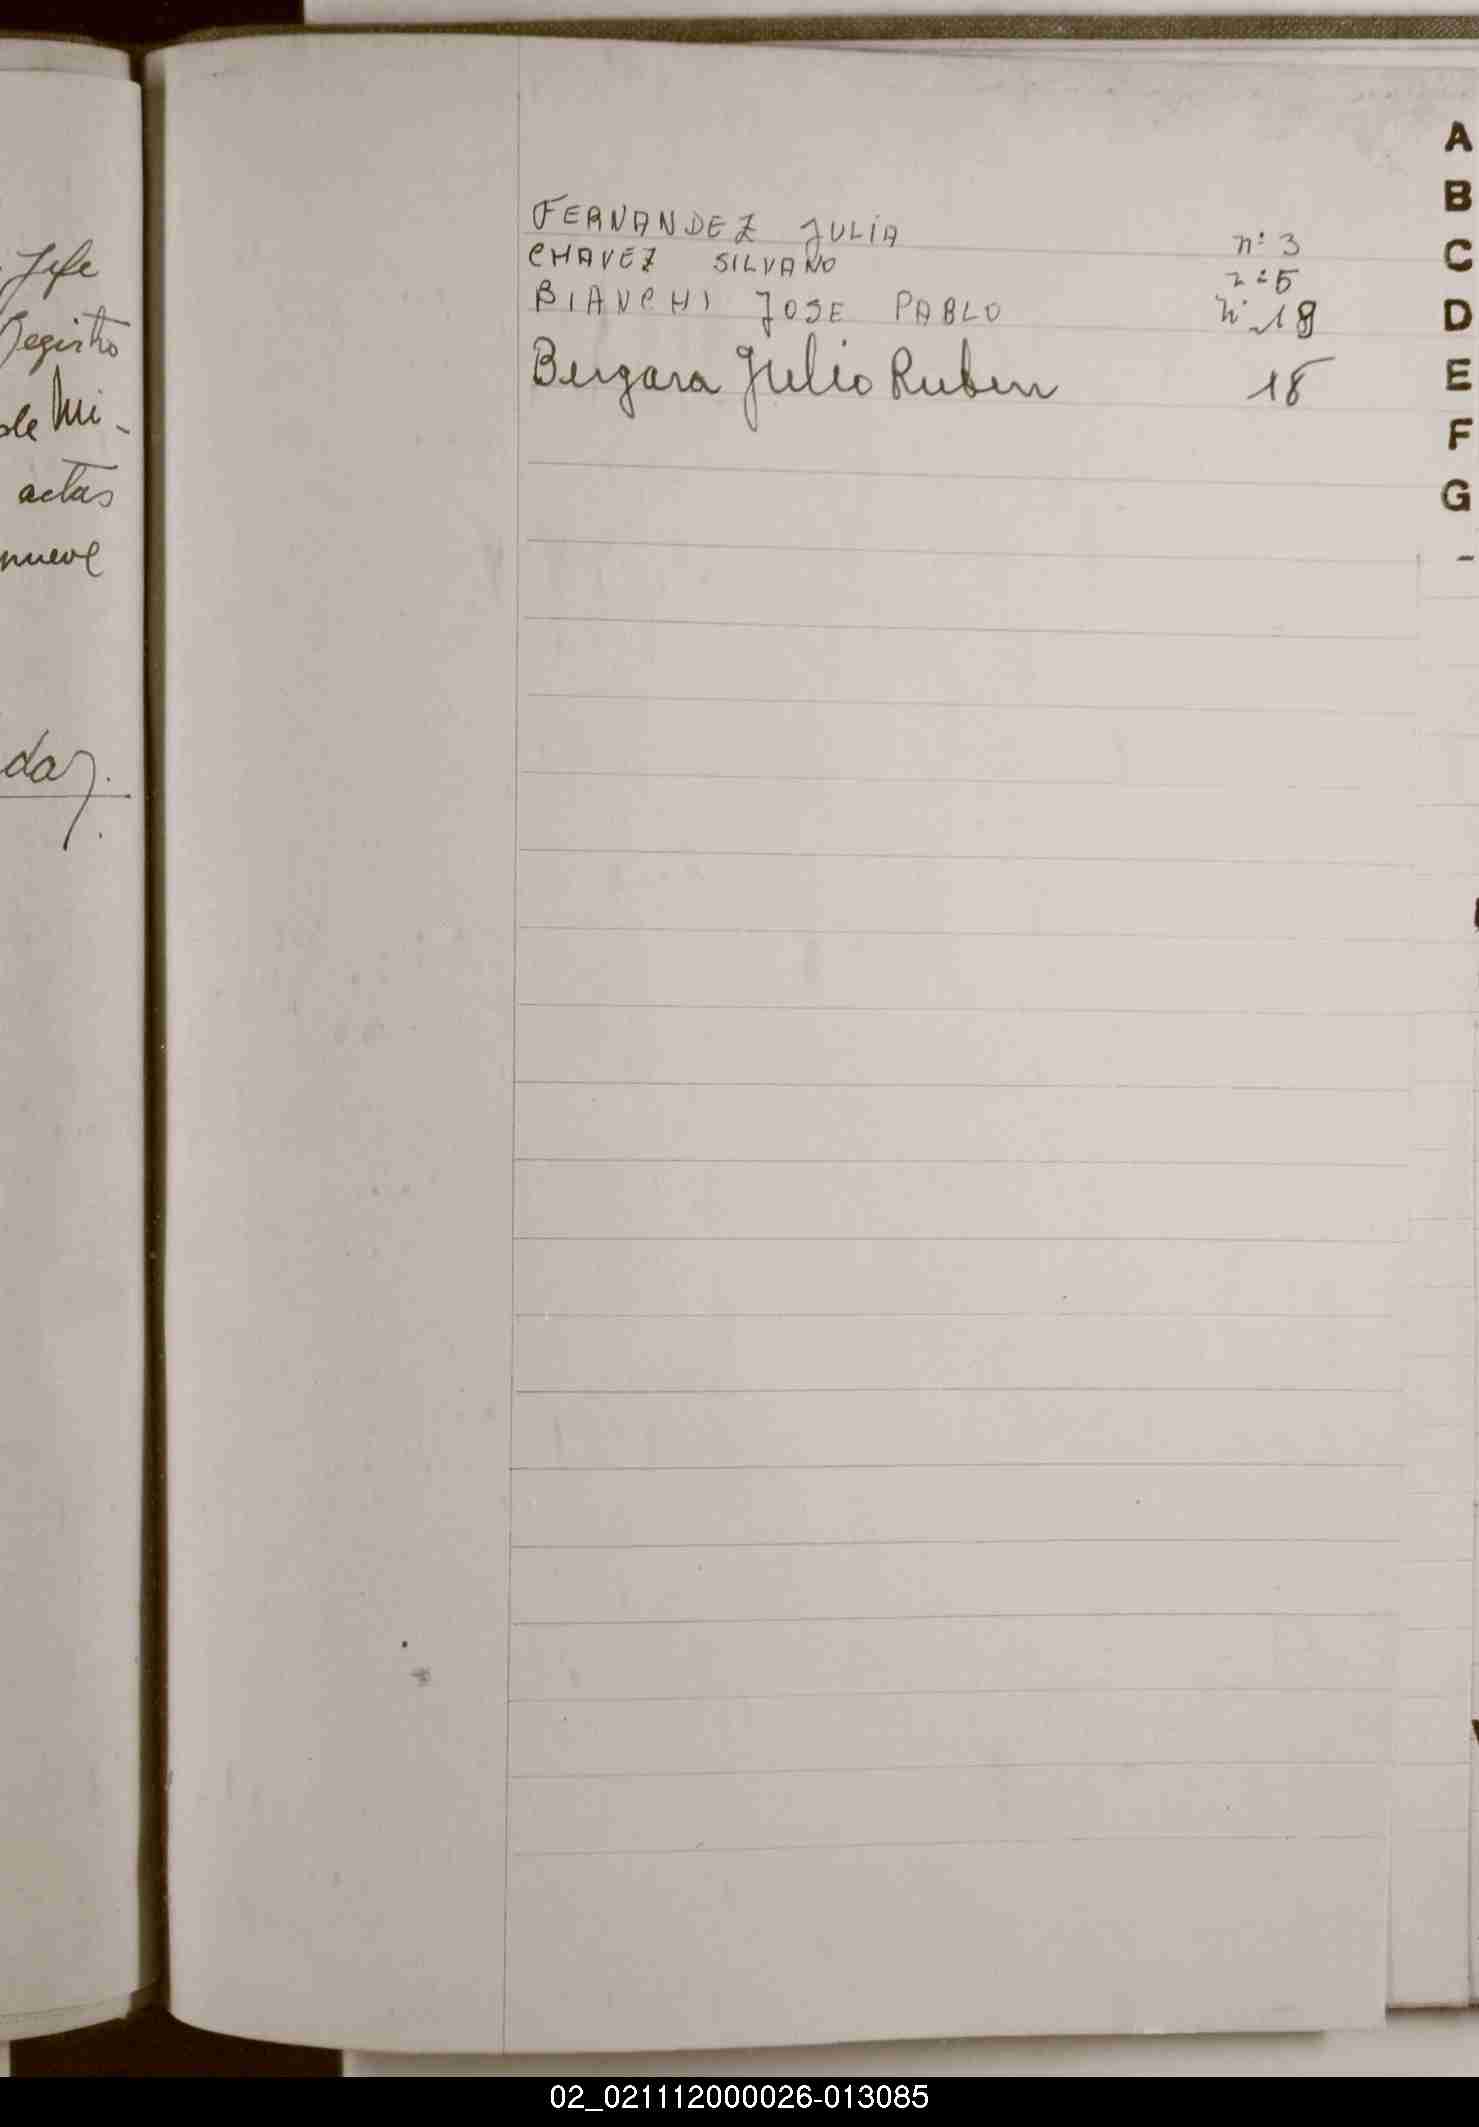 Jefe
Registro
de Mi-
actas
nueve
FERNANDEZ JULIA n: 3
CHAVEZ SILVANO n: 5
BIANCHI JOSE PABLO n: 18
Bergara Julio Ruben 18
A
B
C
D
E
F
G
02_021112000026-013085